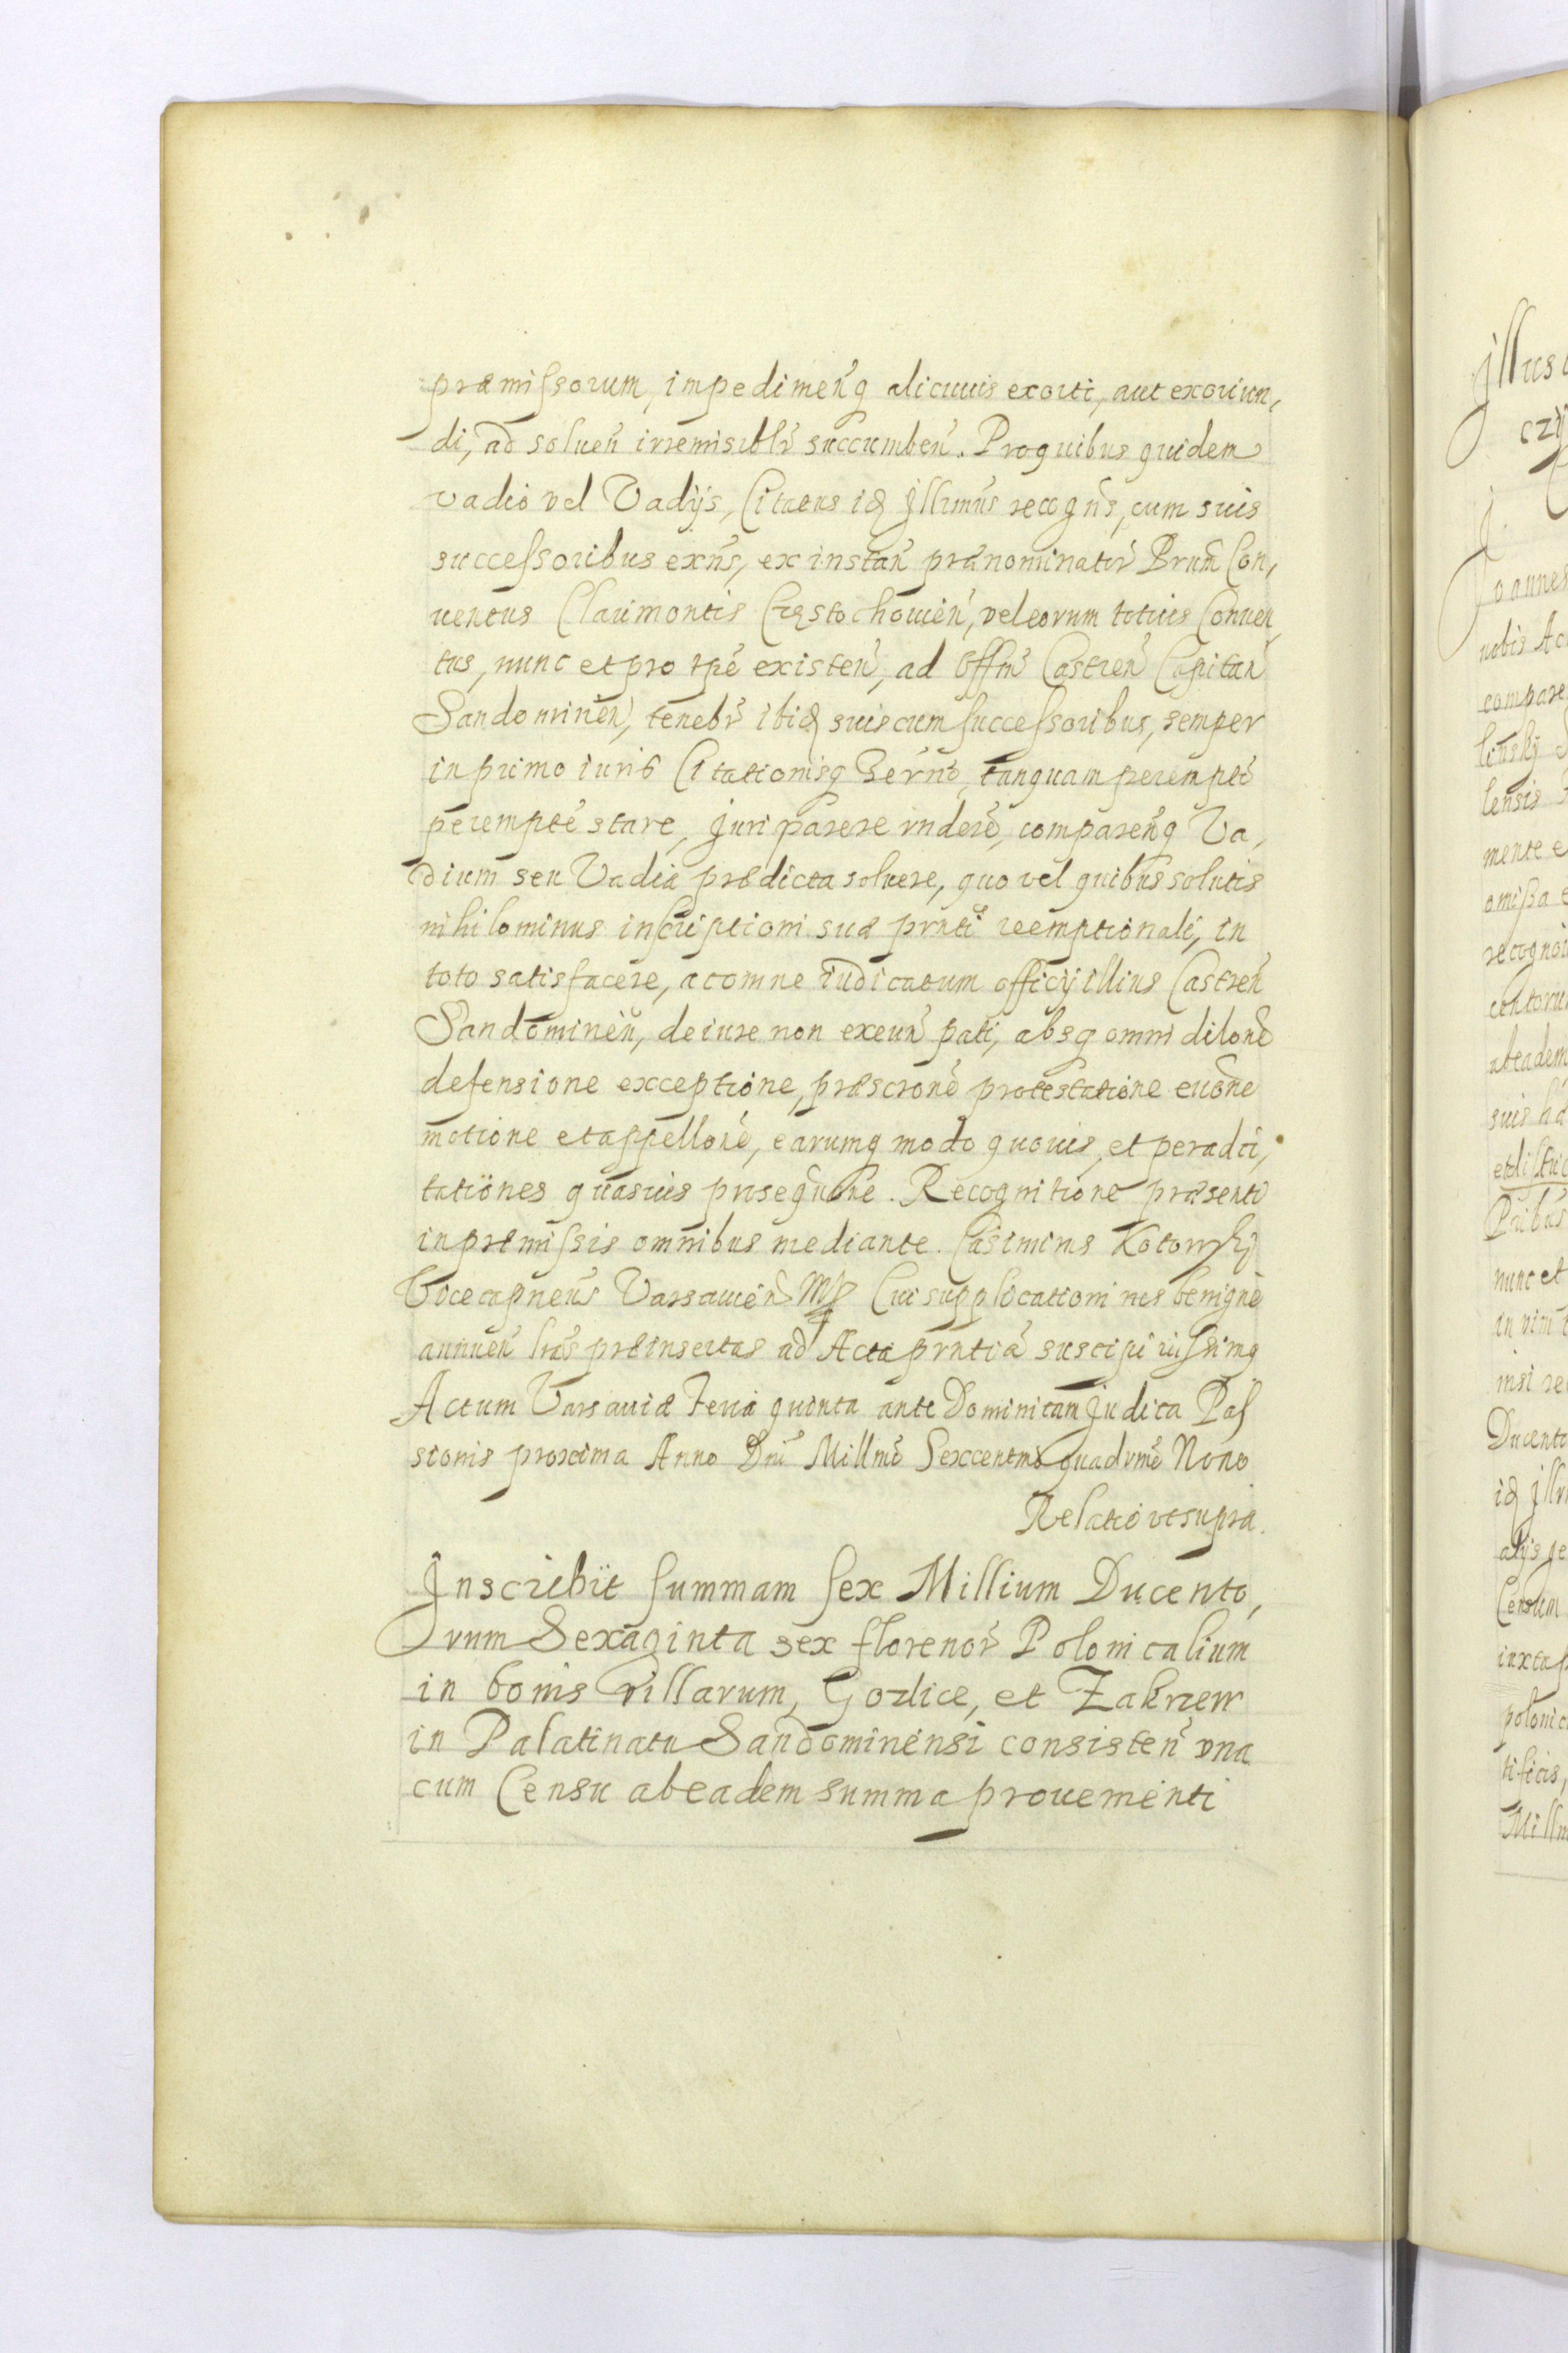 præmissorum, impedimenq̃ alicuius exorti, aut exoriun,
di, ad soluen̄ irremisiblr̄ succumben̄. Pro quibus quidem
vadio vel Vadijs, Citatus idẽ Jllrmus recogn̄s, cum suis
successoribus exn̄s, ex instan̄ prænominator̄ Prum̄ Con,
uentus Clarimontis Częstochouien̄, vel eorum totius Conuen,
tus, nunc et pro tp̄e existen̄, ad Offm̄ Castren̄ Capitan̄
Sandomirien̄, tenebr̄ ibidẽ suis cum successoribus, semper
in primo iuris Citationisq̃ Ter̄no, tanquam peremptō
peremptē stare, Juri parere rn̄dere, comparenq̃ Va,
dium seu Vadia prædicta soluere, quo vel quibus solutis
nihilominus inscriptioni suæ prn̄ti reemptionali, in
toto satisfacere, ac omne iudicatum officij illius Castren̄
Sandomirien̄, de iure non exeun̄ pati, absq̃ omni dilonē
defensione exceptione, præscronē protestatione euonē
motione et appellonē, earumq̃ modo quouis, et per adci,
tationes quasuis prosequōne. Recognitione præsenti
in præmissis omnibus mediante. Casimirus Kotowskj
Vicecapneūs Varsauien̄ Mp Cui supplicationi nrs̄ benignè
annuen̄ lrās præinsertas ad Acta prn̄tia suscipi iussimq̃
Actum Varsauiæ Feria quinta ante Dominicam Judica Pas
sionis proxima Anno Dnī Millmō Sexcentmō quadrmō Nono
Relatio vt supra.
Jnscribit Summam Sex Millium Ducento,
rum Sexaginta sex florenor̄ Polonicalium
in bonis villarum, Gozlice, et Zakrzew
in Palatinatu Sandomiriensi consisten̄ vna
cum Censu ab eadem summa prouenienti